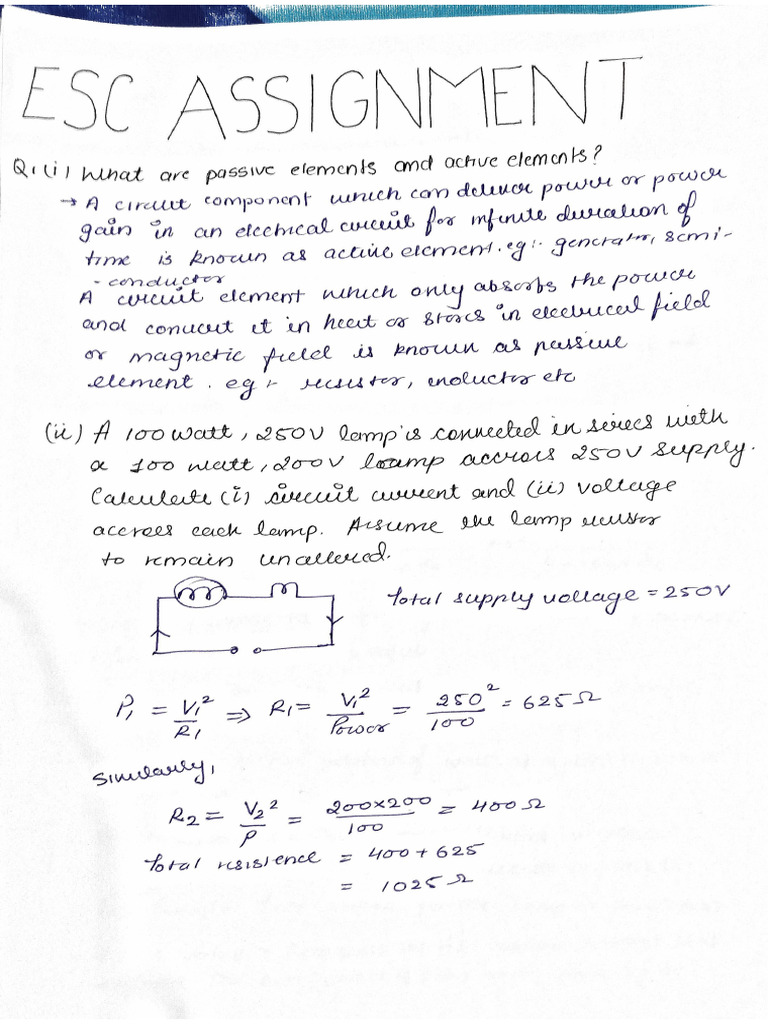 ESC ASSIGNMENT
Q1(i) What are passive elements and active elements?
→ A circuit component which can deliver power or power
gain in an electrical circuit for infinite duration of
time is known as active element. eg:- generator, semi-
-conductor
A circuit element which only absorbs the power
and convert it in heat or stores in electrical field
or magnetic field is known as passive
element. eg:- resistor, inductor etc
(ii) A 100 watt, 250V lamp is connected in series with
a 100 watt, 200V lamp accross 250V supply.
Calculate (i) circuit current and (ii) voltage
accross each lamp. Assume the lamp resistor
to remain unaltered.
Total supply voltage = 250V
P₁ = V₁²/R₁ ⇒ R₁ = V₁²/Power = 250²/100 = 625Ω
Similarly,
R₂ = V₂²/P = 200×200/100 = 400Ω
Total resistence = 400 + 625
= 1025Ω